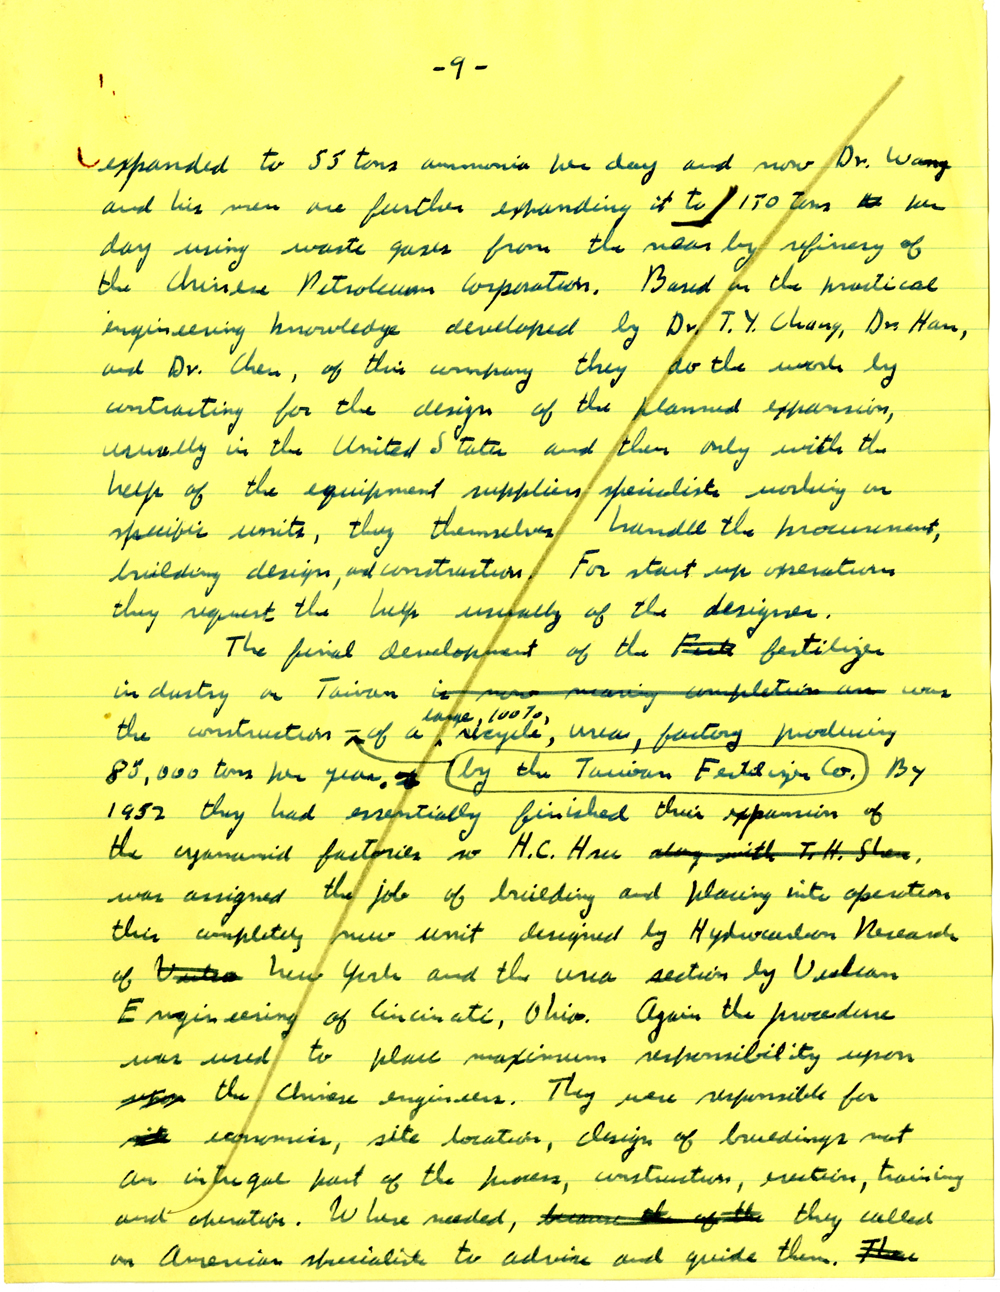 -9-
expanded to 55 tons ammonia per day and now Dr. Wang
and his men are further expanding it to 150 tons per
day using waste gases from the near by refinery of
the Chinese Petroleum Corporation. Based on the practical
engineering knowledge developed by Dr. T.Y. Chang, Dr. Han,
and Dr. Chen, of this company they do the work by
contracting for the design of the planned expansion,
usually in the United States and then only with the
help of the equipment suppliers specialists working on
specific units, they themselves handle the procurement,
building design, and construction. For start up operations
they request the help usually of the designer.
The final development of the fertilizer
industry on Taiwan is now nearing completion was
large, 100%,
the construction - of a recycle, urea, factory producing
85,000 tons per year. by the Taiwan Fertilizer Co. By
1952 they had essentially finished their expansion of
the cyanamid factories so H.C. Hsu along with T.H. Shen,
was assigned the job of building and placing into operation
this completely new unit designed by Hydrocarbon Research
of New York and the urea section by Vulcan
Engineering of Cincinati, Ohio. Again the procedure
was used to place maximum responsibility upon
upon the Chinese engineers. They were responsible for
economics, site location, design of buildings not
an integal part of the process, construction, erection, training
and operation. Where needed, because of the they called
on American specialists to advise and guide them.